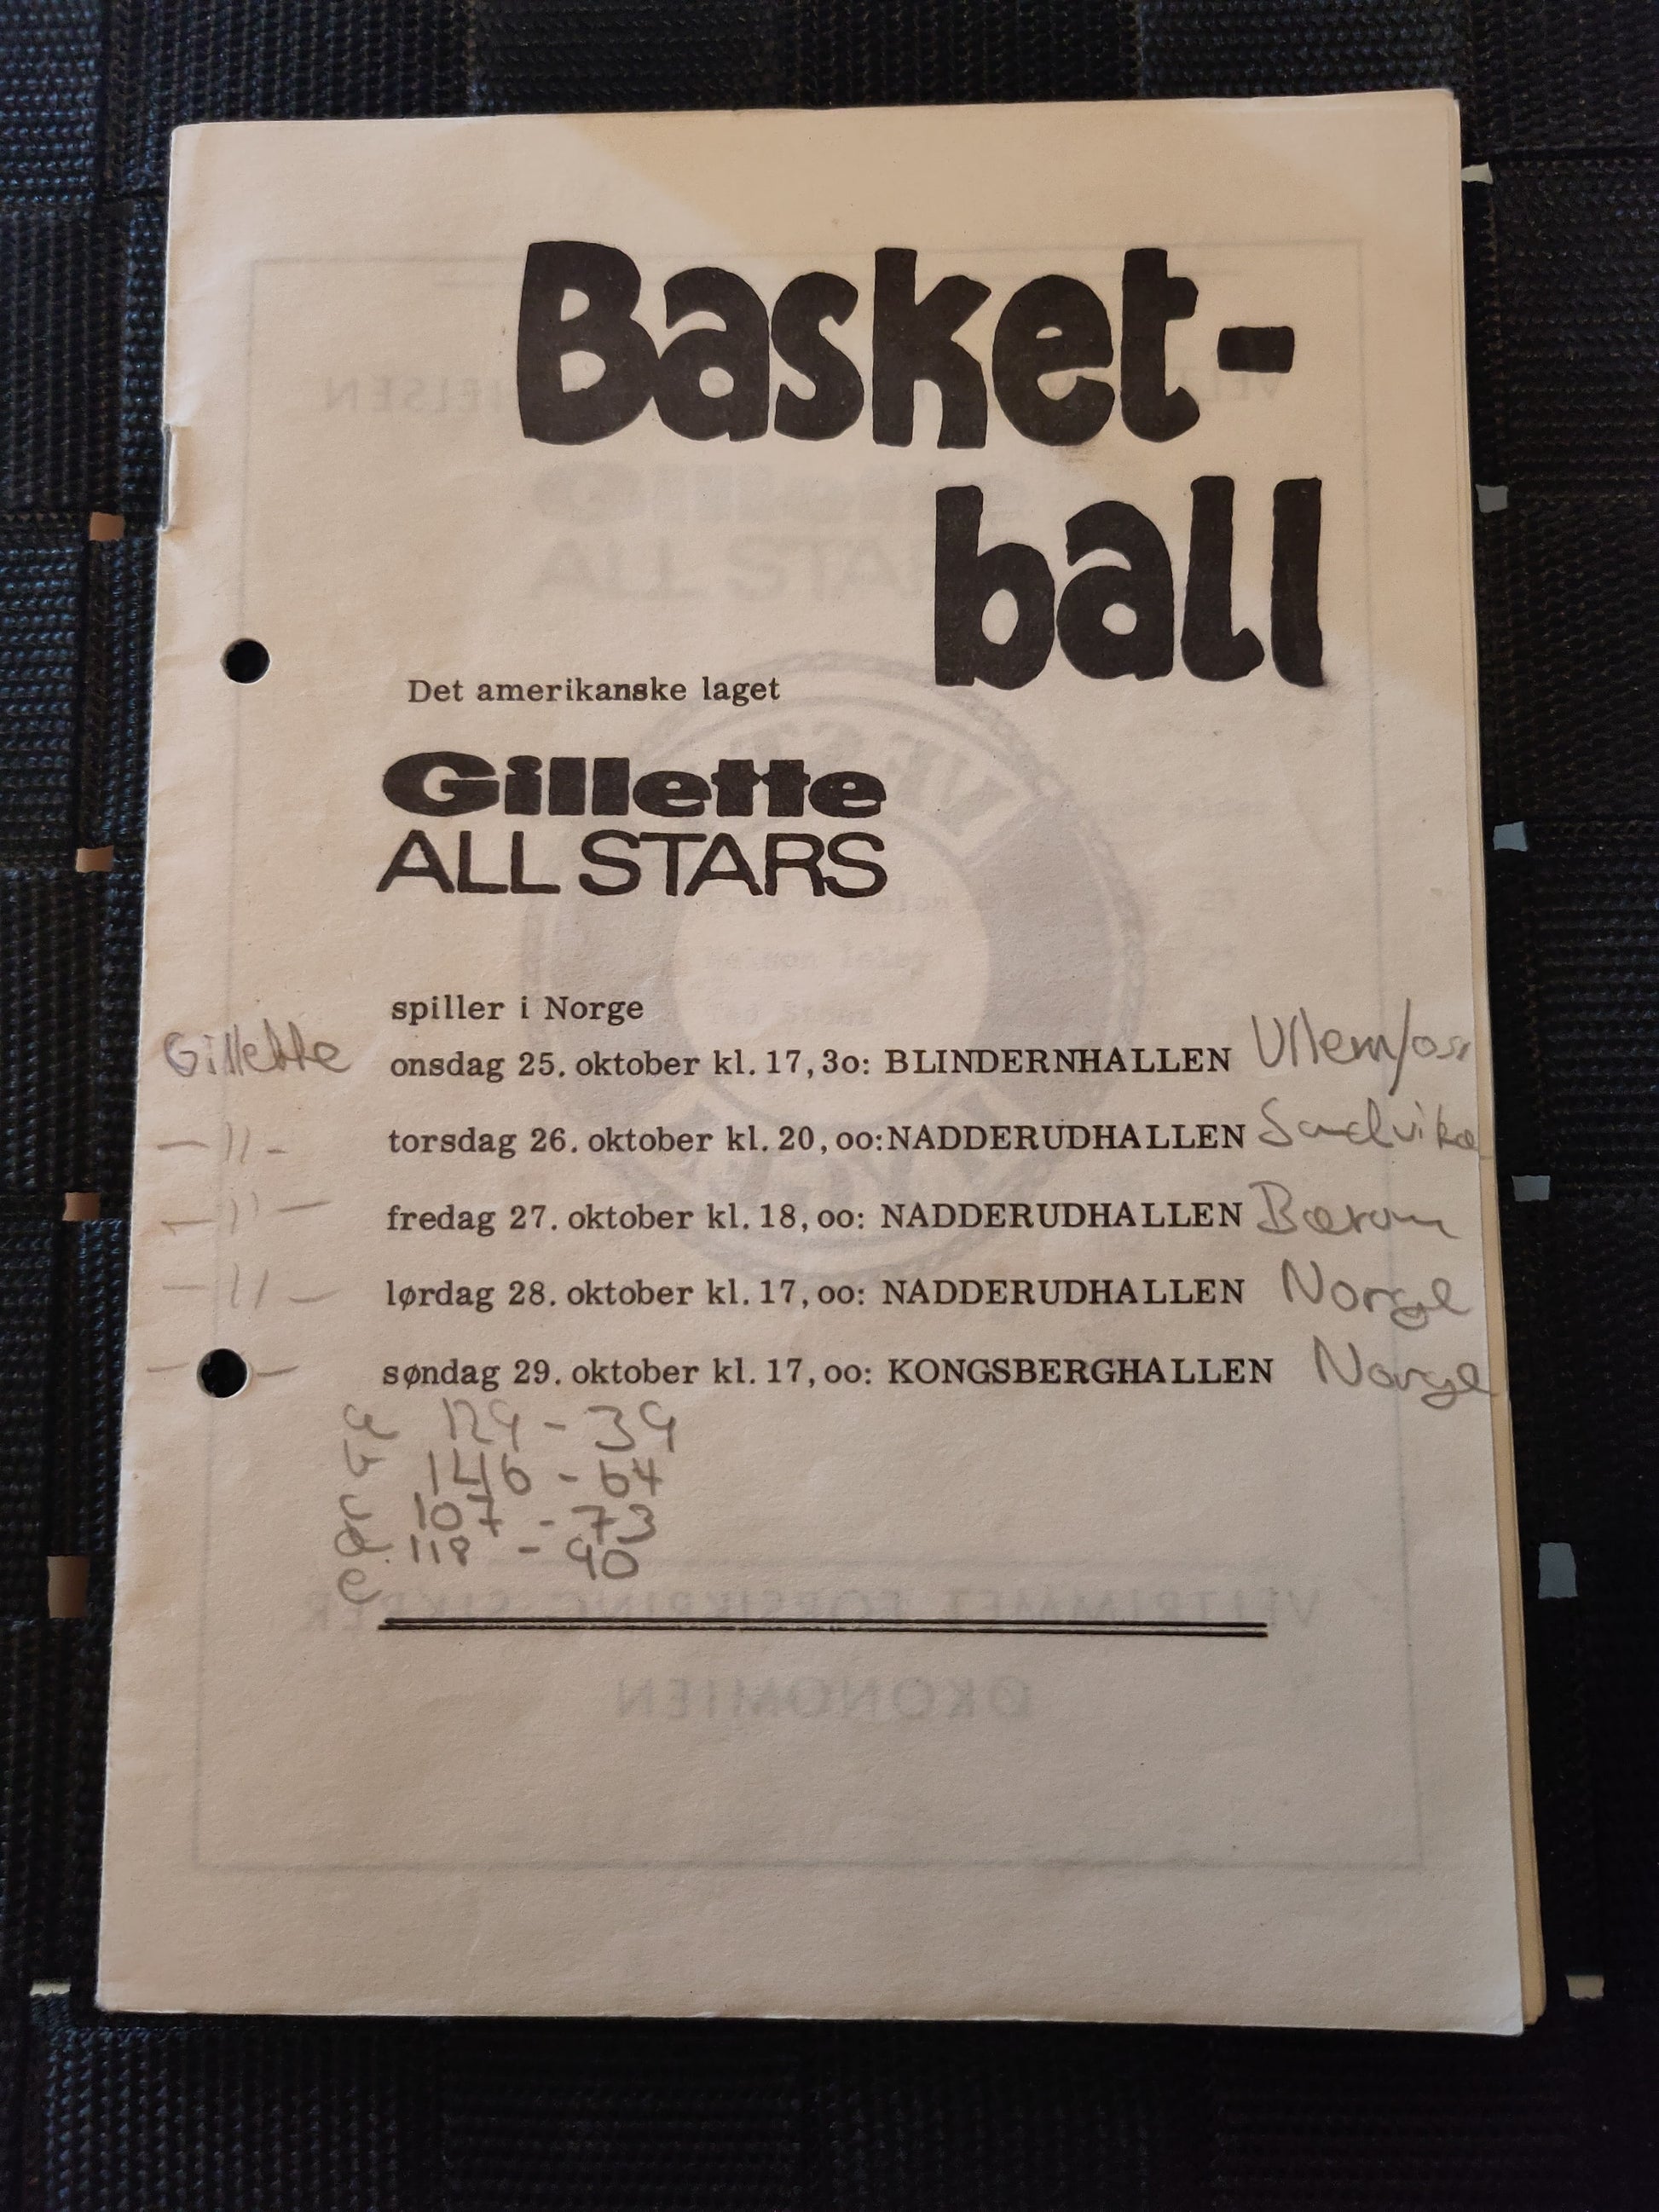 Basket-
ball
Det amerikanske laget
Gillette
ALL STARS
spiller i Norge
Gillette onsdag 25. oktober kl. 17,3o: BLINDERNHALLEN
-11- torsdag 26. oktober kl. 20,oo: NADDERUDHALLEN Sandvika
-11- fredag 27. oktober kl. 18,oo: NADDERUDHALLEN Bærum
-11- lørdag 28. oktober kl. 17,oo: NADDERUDHALLEN Norge
søndag 29. oktober kl. 17,oo: KONGSBERGHALLEN Norge
a 129 - 39
b 146 - 64
c 107 - 73
d. 118 - 90
e
VELTRIMMET FORSIKRING SIKRER
ØKONOMIEN